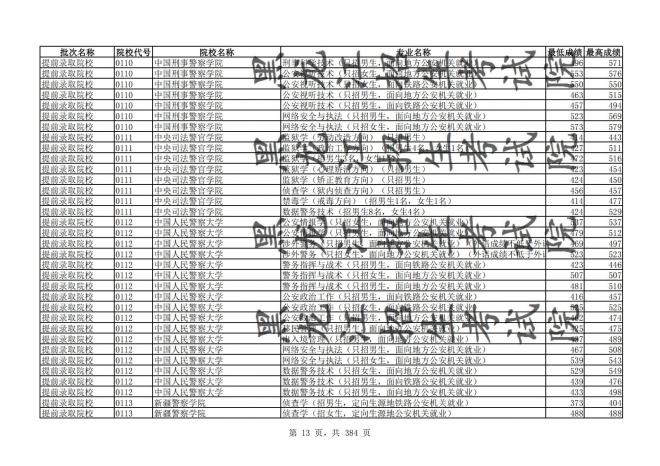 批次名称 院校代号 院校名称 专业名称 最低成绩 最高成绩
提前录取院校 0110 中国刑事警察学院 刑事科学技术（只招男生，面向地方公安机关就业） 571
提前录取院校 0110 中国刑事警察学院 公安视听技术（只招男生，面向地方公安机关就业） 553 576
提前录取院校 0110 中国刑事警察学院 公安视听技术（只招女生，面向地方公安机关就业） 550 550
提前录取院校 0110 中国刑事警察学院 公安视听技术（只招男生，面向铁路公安机关就业） 463 515
提前录取院校 0110 中国刑事警察学院 公安视听技术（只招男生，面向铁路公安机关就业） 457 494
提前录取院校 0110 中国刑事警察学院 网络安全与执法（只招男生，面向地方公安机关就业） 523 569
提前录取院校 0110 中国刑事警察学院 网络安全与执法（只招女生，面向地方公安机关就业） 573 579
提前录取院校 0111 中央司法警官学院 监狱学 443
提前录取院校 0111 中央司法警官学院 监狱学 511
提前录取院校 0111 中央司法警官学院 监狱学 516
提前录取院校 0111 中央司法警官学院 监狱学（心理矫治方向）（只招男生） 423 454
提前录取院校 0111 中央司法警官学院 监狱学（矫正教育方向）（只招男生） 424 450
提前录取院校 0111 中央司法警官学院 侦查学（狱内侦查方向）（只招男生） 456 457
提前录取院校 0111 中央司法警官学院 禁毒学（戒毒方向）（招男生1名，女生1名） 414 477
提前录取院校 0111 中央司法警官学院 数据警务技术（招男生8名，女生4名） 424 529
提前录取院校 0112 中国人民警察大学 公安情报学（只招男生，面向地方公安机关就业） 537
提前录取院校 0112 中国人民警察大学 公安情报学（只招男生，面向铁路公安机关就业） 512
提前录取院校 0112 中国人民警察大学 涉外警务（只招男生，面向地方公安机关就业） 497
提前录取院校 0112 中国人民警察大学 涉外警务（只招女生，面向地方公安机关就业）（外语成绩不低于外 523 523
提前录取院校 0112 中国人民警察大学 警务指挥与战术（只招男生，面向铁路公安机关就业） 423 446
提前录取院校 0112 中国人民警察大学 警务指挥与战术（只招女生，面向地方公安机关就业） 507 507
提前录取院校 0112 中国人民警察大学 警务指挥与战术（只招男生，面向地方公安机关就业） 481 510
提前录取院校 0112 中国人民警察大学 公安政治工作（只招男生，面向铁路公安机关就业） 416 457
提前录取院校 0112 中国人民警察大学 公安政治工作 525
提前录取院校 0112 中国人民警察大学 公安政治工作 474
提前录取院校 0112 中国人民警察大学 移民 475
提前录取院校 0112 中国人民警察大学 出入境管理（只招男生，面向地方公安机关就业） 489
提前录取院校 0112 中国人民警察大学 网络安全与执法（只招男生，面向地方公安机关就业） 467 508
提前录取院校 0112 中国人民警察大学 网络安全与执法（只招女生，面向地方公安机关就业） 539 543
提前录取院校 0112 中国人民警察大学 数据警务技术（只招女生，面向地方公安机关就业） 529 549
提前录取院校 0112 中国人民警察大学 数据警务技术（只招男生，面向铁路公安机关就业） 439 476
提前录取院校 0112 中国人民警察大学 数据警务技术（只招男生，面向地方公安机关就业） 433 498
提前录取院校 0113 新疆警察学院 侦查学（招男生，定向生源地铁路公安机关就业） 373 404
提前录取院校 0113 新疆警察学院 侦查学（招女生，定向生源地公安机关就业） 488 488
黑龙江招生考试院
黑龙江招生考试院
黑龙江招生考试院
黑龙江招生考试院
第 13 页，共 384 页